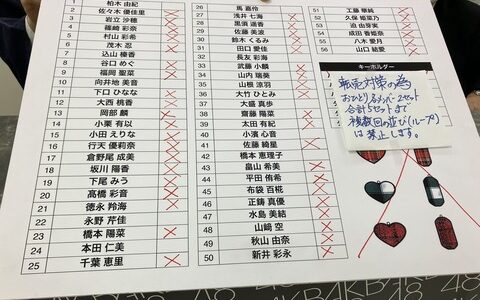 1 柏木 由紀
2 佐々木 優佳里
3 岩立 沙穂
4 篠崎 彩奈
5 村山 彩希
6 茂木 忍
7 込山 榛香
8 谷口 めぐ
9 福岡 聖菜
10 向井地 美音
11 下口 ひなな
12 大西 桃香
13 岡部 麟
14 小栗 有以
15 小田 えりな
16 行天 優莉奈
17 倉野尾 成美
18 坂川 陽香
19 下尾 みう
20 高橋 彩音
21 徳永 羚海
22 永野 芹佳
23 橋本 陽菜
24 本田 仁美
25 千葉 恵里
26 馬 嘉伶
27 浅井 七海
28 黒須 遥香
29 佐藤 美波
30 鈴木 くるみ
31 田口 愛佳
32 長友 彩海
33 武藤 小麟
34 山内 瑞葵
35 山根 涼羽
36 大竹 ひとみ
37 大盛 真歩
38 齋藤 陽菜
39 太田 有紀
40 小濱 心音
41 佐藤 綺星
42 橋本 恵理子
43 畠山 希美
44 平田 侑希
45 布袋 百椛
46 正鋳 真優
47 水島 美結
48 山﨑 空
49 秋山 由奈
50 新井 彩永
51 工藤 華純
52 久保 姫菜乃
53 迫 由芽実
54 成田 香姫奈
55 八木 愛月
56 山口 結愛
キーホルダー
転売対策の為
おひとり各メンバー2セット
合計5セットまで
複数回の並び(ループ)
は禁止します。